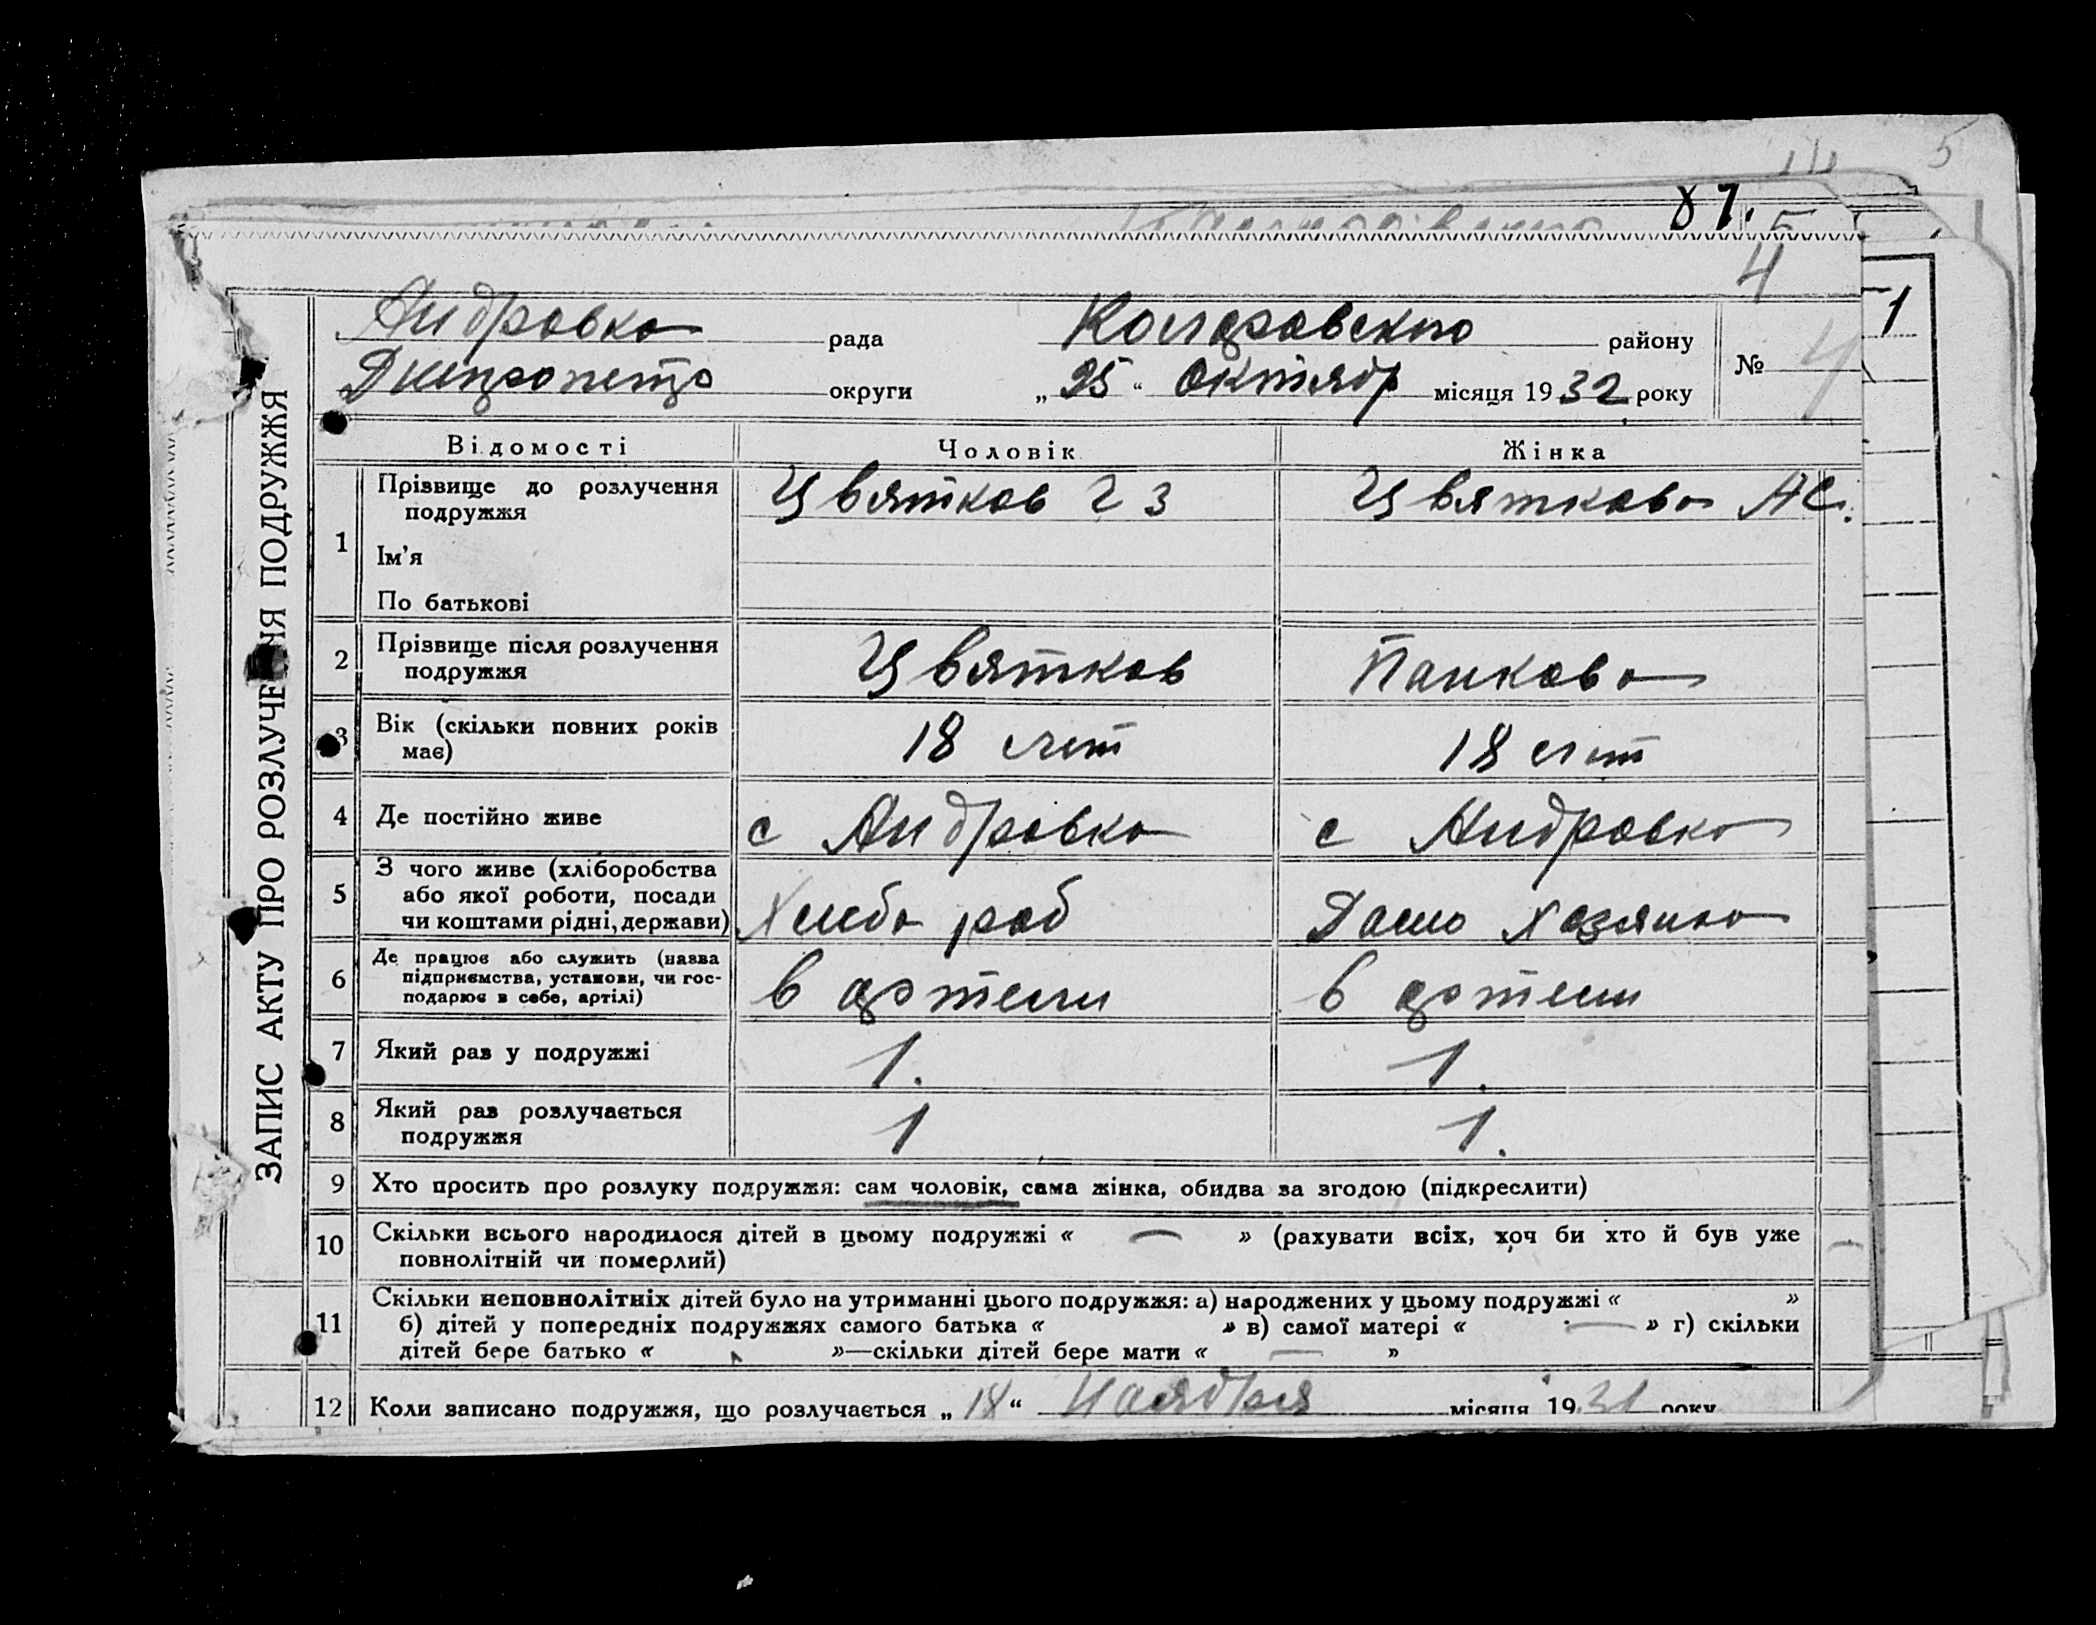 5
87.
5
4
1
Андровка рада Коларовского району
Днепропетр округи „ 25 “ Октябр місяця 1932 року № 4
ЗАПИС АКТУ ПРО РОЗЛУЧЕННЯ ПОДРУЖЖЯ
Відомості Чоловік Жінка
1 Прізвище до розлучення Цвятков Г З Цвяткова АС.
подружжя
Ім’я
По батькові
2 Прізвище після розлучення Цвятков Панкова
подружжя
3 Вік (скільки повних років 18 лет 18 лет
має)
4 Де постійно живе с Андровка с Андровка
5 З чого живе (хліборобства
або якої роботи, посади
чи коштами рідні, держави) Хлеба роб Дамо хозяика
6 Де працює або служить (назва
підприємства, установи, чи гос-
подарює в себе, артілі) в артели в артели
7 Який раз у подружжі 1. 1.
8 Який раз розлучається 1 1.
подружжя
9 Хто просить про розлуку подружжя: сам чоловік, сама жінка, обидва за згодою (підкреслити)
10 Скільки всього народилося дітей в цьому подружжі « — » (рахувати всіх, хоч би хто й був уже
повнолітній чи померлий)
11 Скільки неповнолітніх дітей було на утриманні цього подружжя: а) народжених у цьому подружжі « »
б) дітей у попередніх подружжях самого батька « » в) самої матері « — » г) скільки
дітей бере батько « »—скільки дітей бере мати « — »
12 Коли записано подружжя, що розлучається „ 18 “ Наября місяця 1931 року